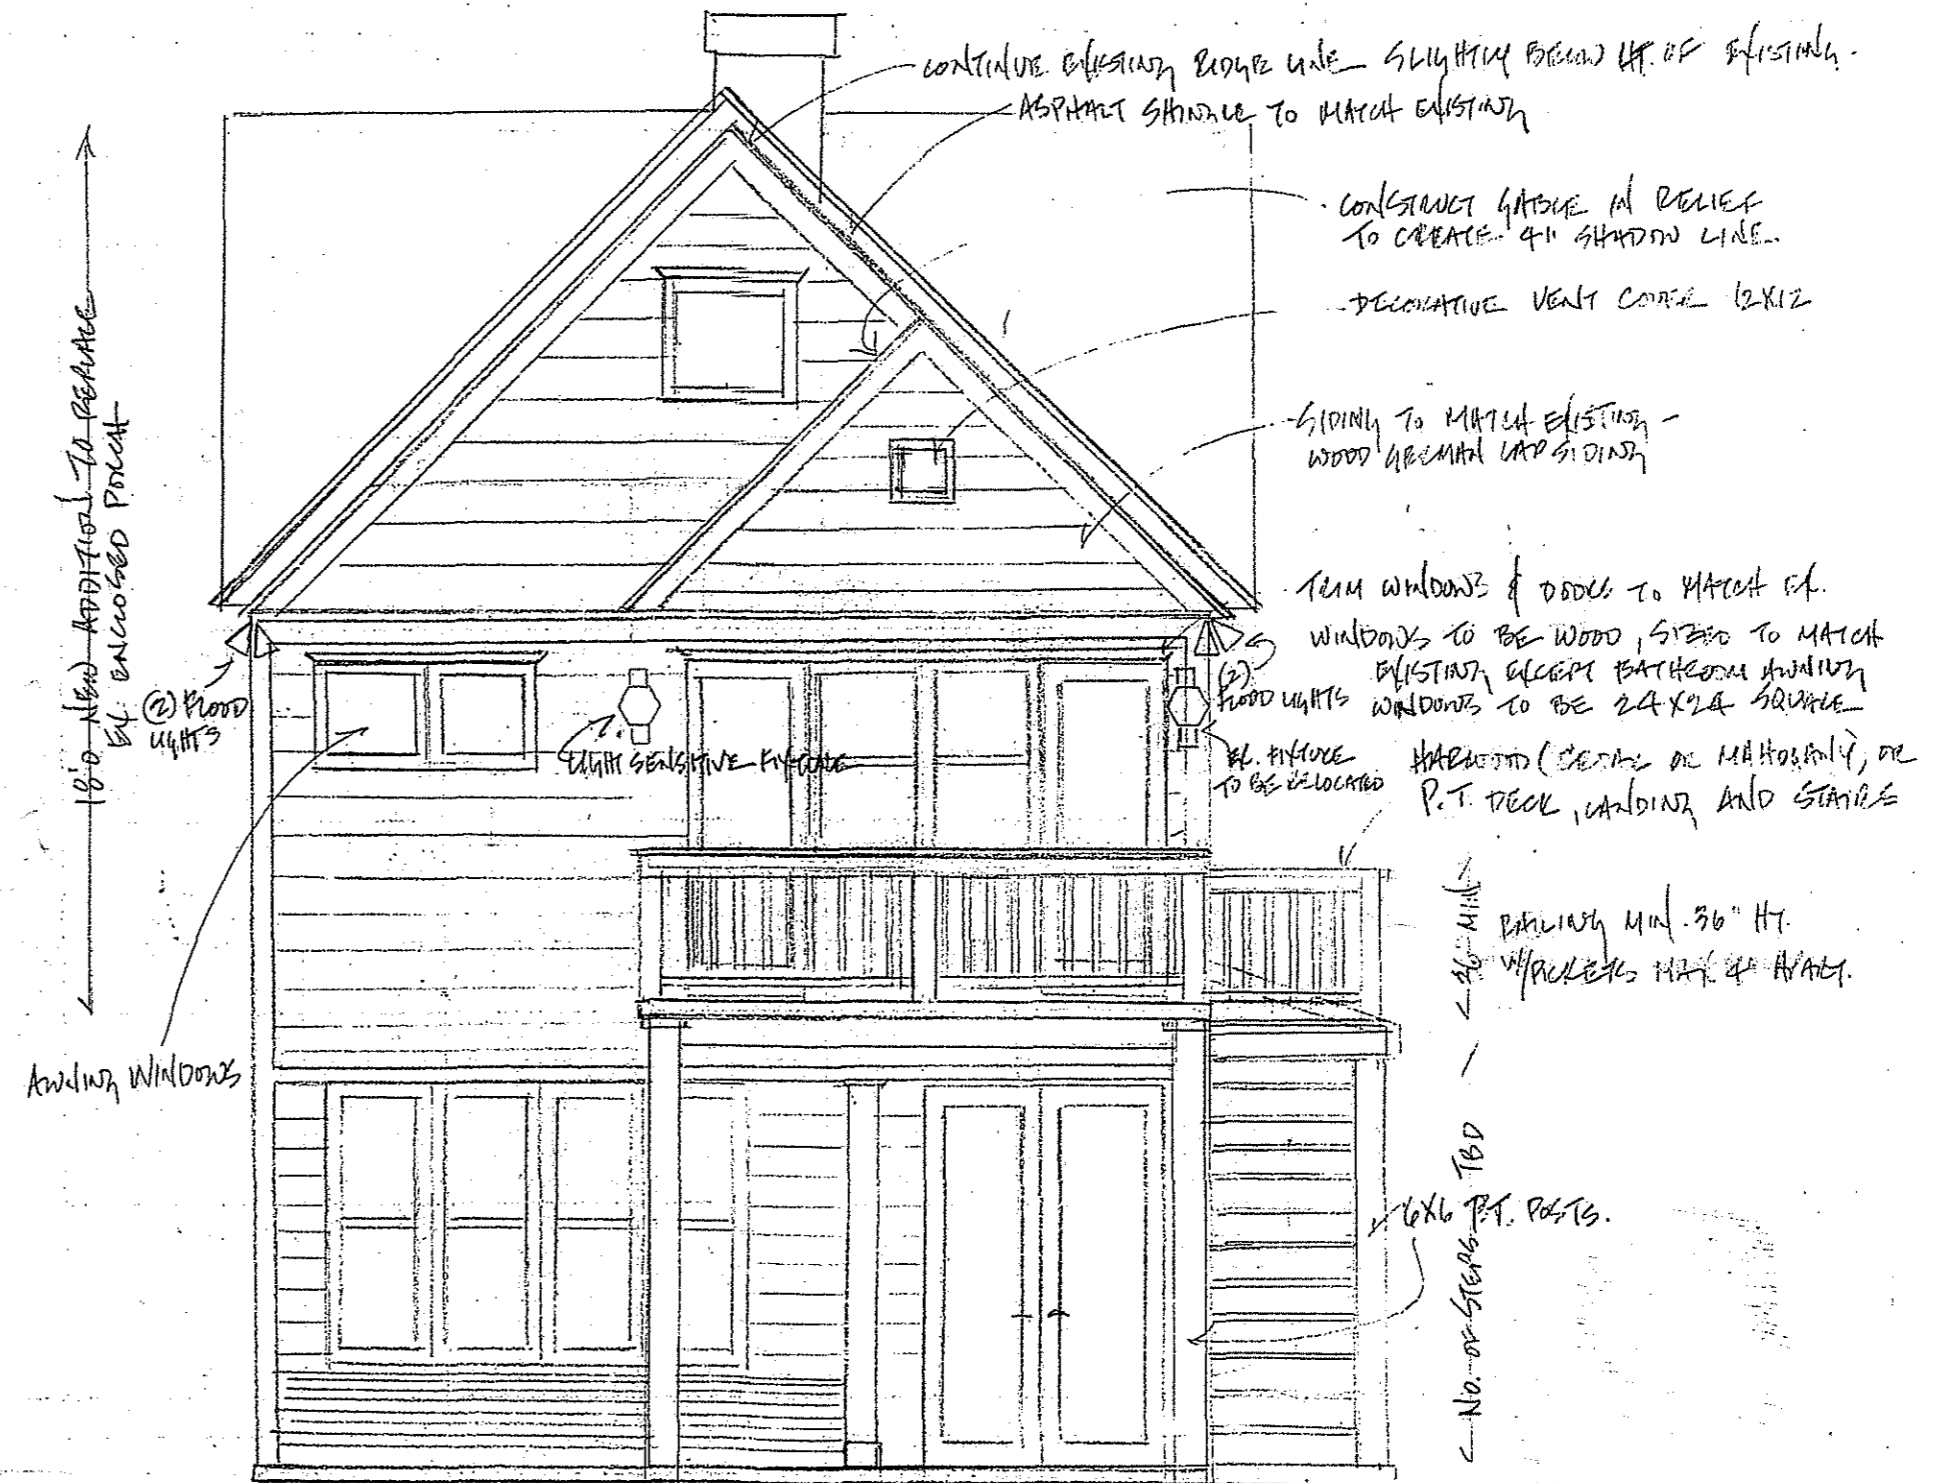 CONTINUE EXISTING RIDGE LINE SLIGHTLY BELOW HT. OF EXISTING.
ASPHALT SHINGLE TO MATCH EXISTING
CONSTRUCT GABLE IN RELIEF
TO CREATE 4" SHADOW LINE.
DECORATIVE VENT COVER 12X12
SIDING TO MATCH EXISTING -
WOOD GERMAN LAP SIDING
TRIM WINDOWS & DOORS TO MATCH EX.
WINDOWS TO BE WOOD, SIZED TO MATCH
EXISTING EXCEPT BATHROOM AWNING
WINDOWS TO BE 24X24 SQUARE
18'0 NEW ADDITION TO REPLACE
EX. ENCLOSED PORCH
(2) FLOOD
LIGHTS
LIGHT SENSITIVE FIXTURE
(2)
FLOOD LIGHTS
EX. FIXTURE
TO BE RELOCATED
HARDWOOD (CEDAR OR MAHOGANY), OR
P.T. DECK, LANDING AND STAIRS
36" MIN
RAILING MIN. 36" HT.
W/PICKETS MAX 4" APART.
AWNING WINDOWS
6X6 P.T. POSTS.
NO. OF STEPS TBD